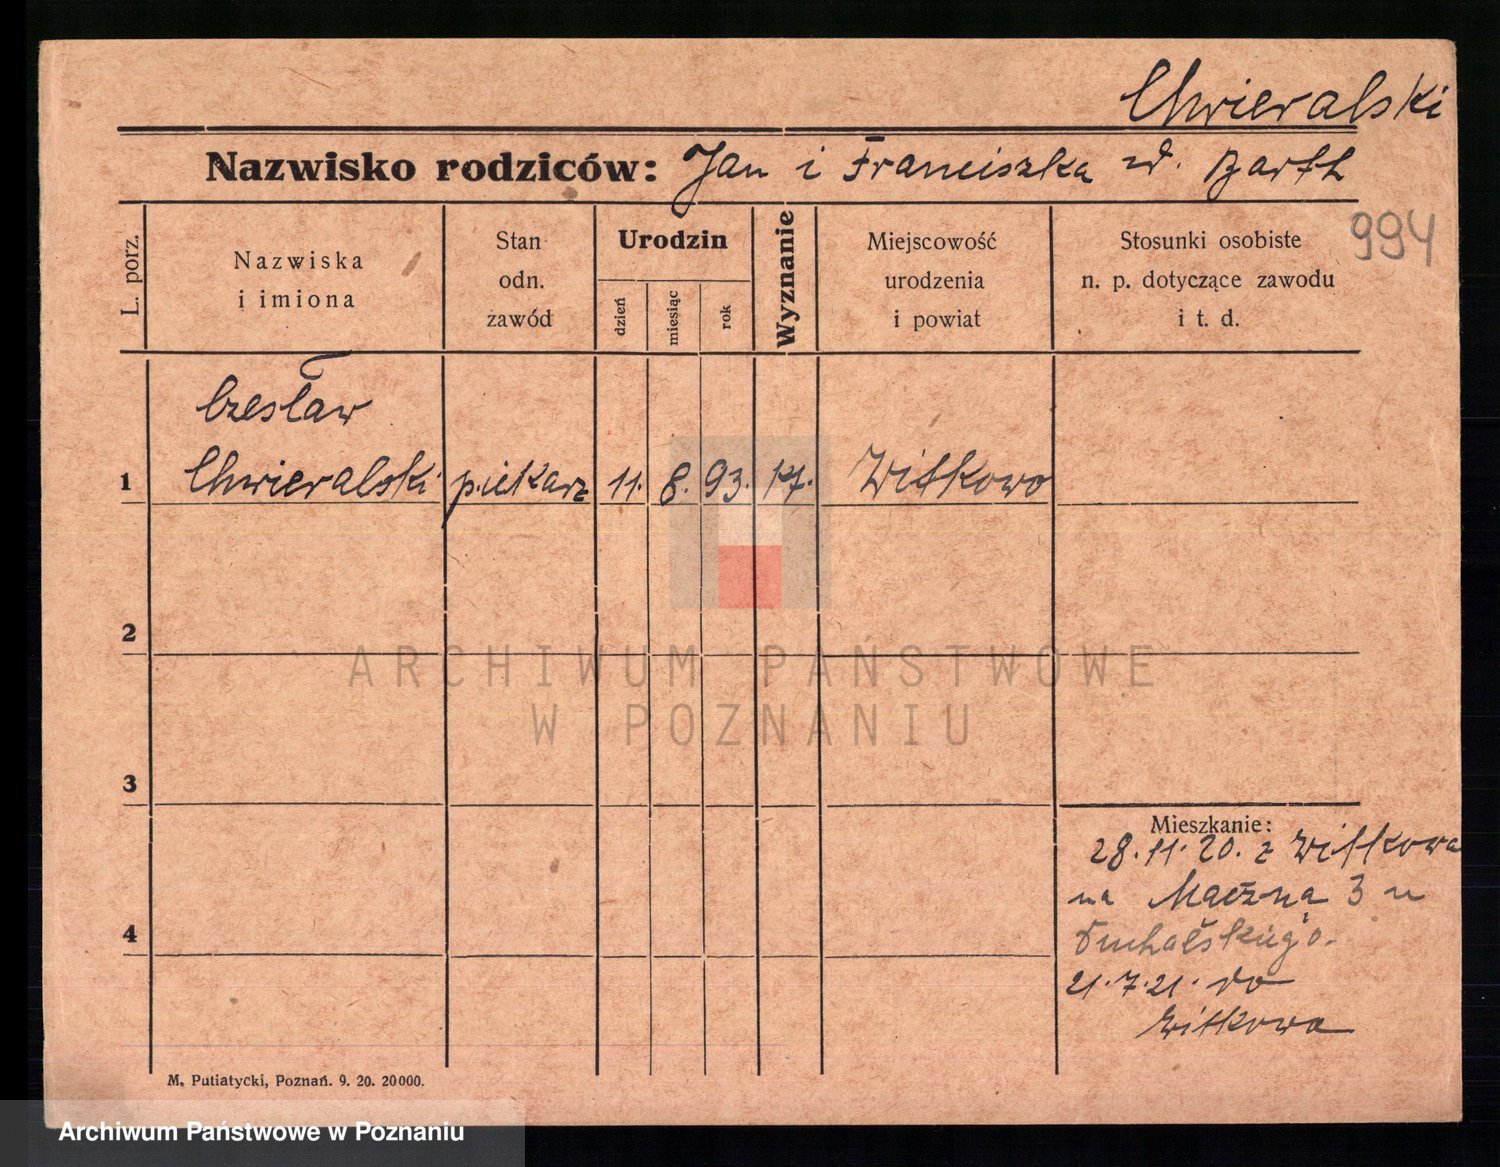 Chwieralski
Nazwisko rodziców: Jan i Franciszka zd. Barth
994
L. porz.
Nazwiska
i imiona
Stan
odn.
zawód
Urodzin
dzień
miesiąc
rok
Wyznanie
Miejscowość
urodzenia
i powiat
Stosunki osobiste
n. p. dotyczące zawodu
i t. d.
Czesław
1 Chwieralski piekarz 11. 8. 93. kt. Witkowo
2
ARCHIWUM PAŃSTWOWE
W POZNANIU
3
Mieszkanie:
28.11.20. z Witkowa
na Mączną 3 u
4
21.7.21. do
Witkowa
M. Putiatycki, Poznań. 9. 20. 20000.
Archiwum Państwowe w Poznaniu